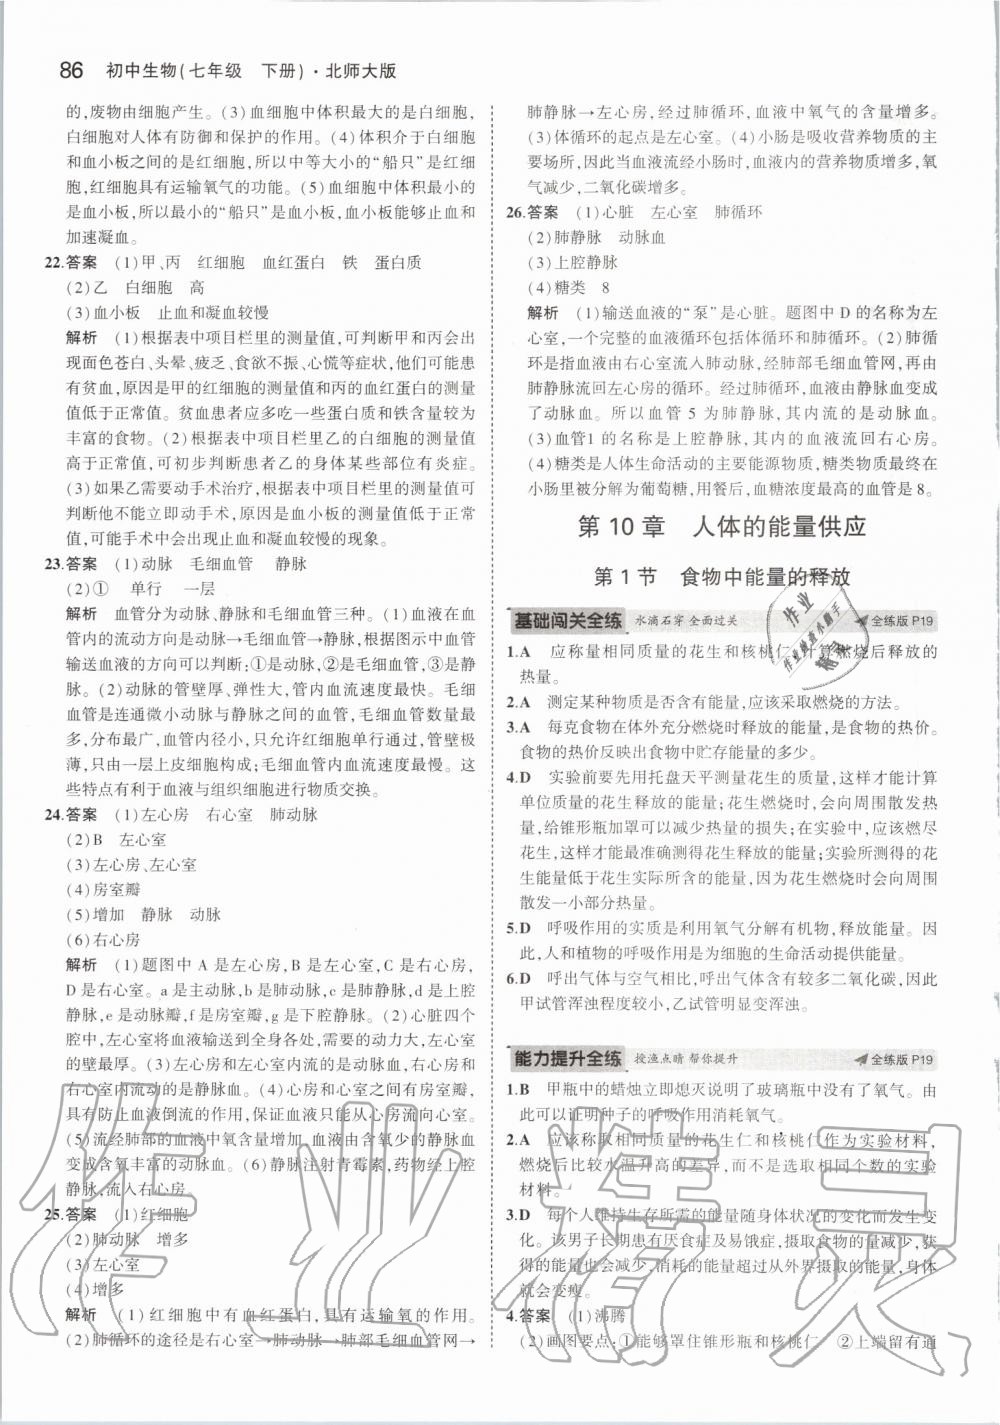 86 初中生物(七年级 下册)·北师大版
的,废物由细胞产生。(3)血细胞中体积最大的是白细胞,
白细胞对人体有防御和保护的作用。(4)体积介于白细胞
和血小板之间的是红细胞,所以中等大小的“船只”是红细
胞,红细胞具有运输氧气的功能。(5)血细胞中体积最小的
是血小板,所以最小的“船只”是血小板,血小板能够止血和
加速凝血。
22.答案 (1)甲、丙 红细胞 血红蛋白 铁 蛋白质
(2)乙 白细胞 高
(3)血小板 止血和凝血较慢
解析 (1)根据表中项目栏里的测量值,可判断甲和丙会出
现面色苍白、头晕、疲乏、食欲不振、心慌等症状,他们可能患
有贫血,原因是甲的红细胞的测量值和丙的血红蛋白的测量
值低于正常值。贫血患者应多吃一些蛋白质和铁含量较为
丰富的食物。(2)根据表中项目栏里乙的白细胞的测量值
高于正常值,可初步判断患者乙的身体某些部位有炎症。
(3)如果乙需要动手术治疗,根据表中项目栏里的测量值可
判断他不能立即动手术,原因是血小板的测量值低于正常
值,可能手术中会出现止血和凝血较慢的现象。
23.答案 (1)动脉 毛细血管 静脉
(2)① 单行 一层
解析 血管分为动脉、静脉和毛细血管三种。(1)血液在血
管内的流动方向是动脉→毛细血管→静脉,根据图示中血管
输送血液的方向可以判断:①是动脉,②是毛细血管,③是静
脉。(2)动脉的管壁厚、弹性大,管内血流速度最快。毛细
血管是连通微小动脉与静脉之间的血管,毛细血管数量最
多,分布最广,血管内径小,只允许红细胞单行通过,管壁极
薄,只由一层上皮细胞构成;毛细血管内血流速度最慢。这
些特点有利于血液与组织细胞进行物质交换。
24.答案 (1)左心房 右心室 肺动脉
(2)B 左心室
(3)左心房、左心室
(4)房室瓣
(5)增加 静脉 动脉
(6)右心房
解析 (1)题图中 A 是左心房,B 是左心室,C 是右心房,
D 是右心室。a 是主动脉,b 是肺动脉,c 是肺静脉,d 是上腔
静脉,e 是动脉瓣,f 是房室瓣,g 是下腔静脉。(2)心脏四个
腔中,左心室将血液输送到全身各处,需要的动力大,左心室
的壁最厚。(3)左心房和左心室内流的是动脉血,右心房和
右心室内流动的是静脉血。(4)心房和心室之间有房室瓣,
具有防止血液倒流的作用,保证血液只能从心房流向心室。
(5)流经肺部的血液中氧含量增加,血液由含氧少的静脉血
变成含氧丰富的动脉血。(6)静脉注射青霉素,药物经上腔
静脉,流入右心房。
25.答案 (1)红细胞
(2)肺动脉 增多
(3)左心室
(4)增多
解析 (1)红细胞中含有血红蛋白,具有运输氧的作用。
(2)肺循环的途径是右心室→肺动脉→肺部毛细血管网→
肺静脉→左心房,经过肺循环,血液中氧气的含量增多。
(3)体循环的起点是左心室。(4)小肠是吸收营养物质的主
要场所,因此当血液流经小肠时,血液内的营养物质增多,氧
气减少,二氧化碳增多。
26.答案 (1)心脏 左心室 肺循环
(2)肺静脉 动脉血
(3)上腔静脉
(4)糖类 8
解析 (1)输送血液的“泵”是心脏。题图中 D 的名称为左
心室,一个完整的血液循环包括体循环和肺循环。(2)肺循
环是指血液由右心室流入肺动脉,经肺部毛细血管网,再由
肺静脉流回左心房的循环。经过肺循环,血液由静脉血变成
了动脉血。所以血管 5 为肺静脉,其内流的是动脉血。
(3)血管1 的名称是上腔静脉,其内的血液流回右心房。
(4)糖类是人体生命活动的主要能源物质,糖类物质最终在
小肠里被分解为葡萄糖,用餐后,血糖浓度最高的血管是 8。
第 10 章 人体的能量供应
第 1 节 食物中能量的释放
基础闯关全练 水滴石穿 全面过关 全练版 P19
1.A 应称量相同质量的花生和核桃仁,计算燃烧后释放的
热量。
2.A 测定某种物质是否含有能量,应该采取燃烧的方法。
3.A 每克食物在体外充分燃烧时释放的能量,是食物的热价。
食物的热价反映出食物中贮存能量的多少。
4.D 实验前要先用托盘天平测量花生的质量,这样才能计算
单位质量的花生释放的能量;花生燃烧时,会向周围散发热
量,给锥形瓶加罩可以减少热量的损失;在实验中,应该燃尽
花生,这样才能最准确测得花生释放的能量;实验所测得的花
生能量低于花生实际所含的能量,因为花生燃烧时会向周围
散发一小部分热量。
5.D 呼吸作用的实质是利用氧气分解有机物,释放能量。因
此,人和植物的呼吸作用是为细胞的生命活动提供能量。
6.D 呼出气体与空气相比,呼出气体含有较多二氧化碳,因此
甲试管浑浊程度较小,乙试管明显变浑浊。
能力提升全练 授渔点睛 帮你提升 全练版 P19
1.B 甲瓶中的蜡烛立即熄灭说明了玻璃瓶中没有了氧气。由
此可以证明种子的呼吸作用消耗氧气。
2.A 应该称取相同质量的花生仁和核桃仁作为实验材料,
燃烧后比较水温升高的差异,而不是选取相同个数的实验
材料。
3.D 每个人维持生存所需的能量随身体状况的变化而发生变
化。该男子长期患有厌食症及易饿症,摄取食物的量减少,获
得的能量也会减少,消耗的能量超过从外界摄取的能量,身体
就会变瘦。
4.答案 (1)沸腾
(2)画图要点:①能够罩住锥形瓶和核桃仁 ②上端留有通
作业精灵